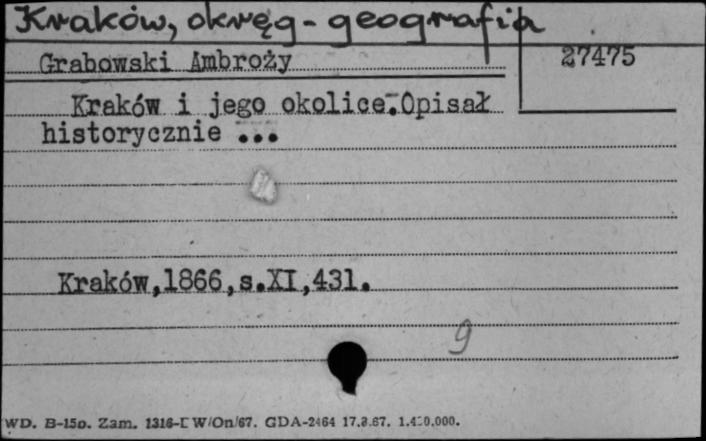 Kraków, okręg - geografia
27475
Grabowski Ambroży
Kraków i jego okolice. Opisał
historycznie ...
Kraków,1866,s.XI,431.
9
WD. B-15o. Zam. 1316- W/On/67. GDA-2464 17.3.67.